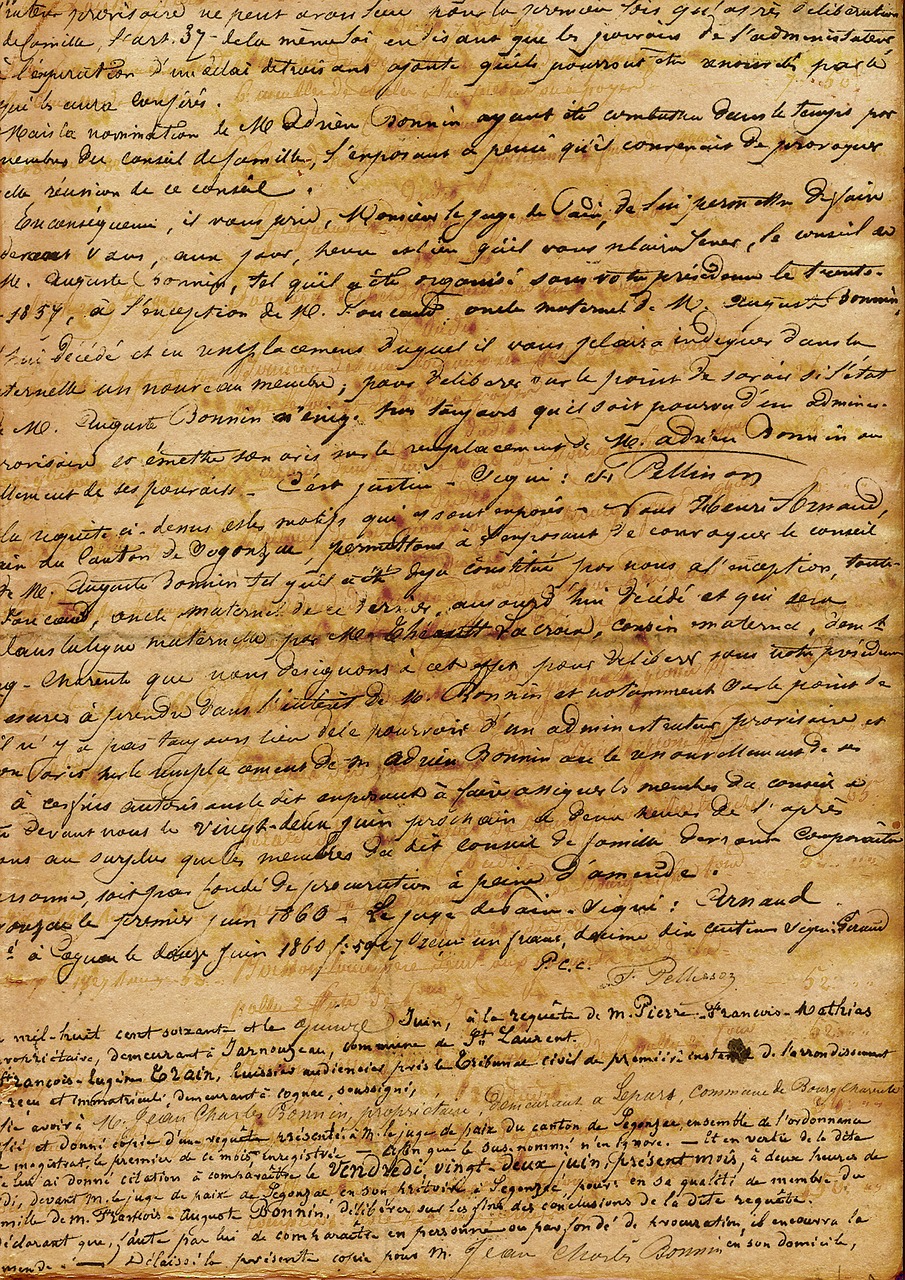 provisoire ne peut avoir lieu pour la première fois qu'après délibération
de famille, l'art. 37 de la même loi en disant que les pouvoirs de l'administrateur
à l'expiration d'un délai de trois ans ajoute qu'ils pourront être renouvelés par le
qui les aura conférés.
Mais la nomination de M Adrien Bonnin ayant été combattue dans le temps par
membres du conseil de famille, l'exposant a pensé qu'il convenait de provoquer
elle réunion de ce conseil.
En conséquence, il vous prie, Monsieur le juge de Paix, de lui permettre de faire
devant vous, aux jour, heure et lieu qu'il vous plaira fixer, le conseil de
M. Auguste Bonnin, tel qu'il a été organisé sous votre présidence le trente-
1857, à l'exception de M. Foucaud, oncle maternel de M. Auguste Bonnin,
hui décédé et en remplacement duquel il vous plaira indiquer dans la
ternelle un nouveau membre; pour délibérer sur le point de savoir si l'état
M. Auguste Bonnin n'exige pas toujours qu'il soit pourvu d'un adminis-
provisoire et émettre son avis sur le remplacement de M. Adrien Bonnin ou
llement de ses pouvoirs – C'est justice – Signé: F. Pellisson
la requête ci-dessus et les motifs qui y sont exposés – Nous Henri Arnaud,
aix du Canton de Segonzac, permettons à l'exposant de convoquer le conseil
de M. Auguste Bonnin tel qu'il a été déjà constitué par nous à l'exception, toute-
Foucaud, oncle maternel de ce dernier, aujourd'hui décédé et qui sera
dans la ligne maternelle par M. Lacroix, cousin maternel, demt
g-Charente que nous désignons à cet effet pour délibérer sous notre présidence
esures à prendre dans l'intérêt de M. Bonnin et notamment sur le point de
il n'y a pas toujours lieu de le pourvoir d'un administrateur provisoire et
on avis sur le remplacement de M Adrien Bonnin ou le renouvellement de ses
à ces fins autorisons le dit exposant à faire assigner les membres du conseil à
devant nous le vingt-deux juin prochain à deux heures de l'après
ons au surplus que les membres du dit conseil de famille devront comparaître
ersonne, soit par fondé de procuration à peine d'amende.
onzac le premier juin 1860 – Le juge de Paix – Signé: Arnaud
é à Cognac le douze juin 1860 f: 59 Reçu un franc, décime dix centimes signé: Giraud
P.c.c.
F. Pellisson
mil-huit cent soixante et le quinze Juin, à la requête de M. Pierre-François-Mathias
propriétaire, demeurant à Jarnouzeau, commune de St Laurent.
François-Eugène Train, huissier audiencier près le Tribunal civil de première instance de l'arrondissement
reçu et immatriculé demeurant à cognac, soussigné,
fié avoir à M. Jean Charles Bonnin, propriétaire, demeurant à Lepars, commune de Bourg Charente
fié et donné copie d'une requête présentée à M. le juge de paix du canton de Segonzac, ensemble de l'ordonnance
magistrat, le premier de ce mois enregistrée — Afin que le sus-nommé n'en ignore. — Et en vertu de la dite
lui ai donné citation à comparaître le vendredi vingt-deux juin, présent mois, à deux heures de
di, devant M. le juge de paix de Segonzac, en son prétoire à Segonzac, pour, en sa qualité de membre du
mille de M. François-Auguste Bonnin, délibérer sur les fins des conclusions de la dite requête.
déclarant que, faute par lui de comparaître en personne ou par fondé de procuration, il encourra la
mende. — Délaissé la présente copie pour M. Jean Charles Bonnin en son domicile,